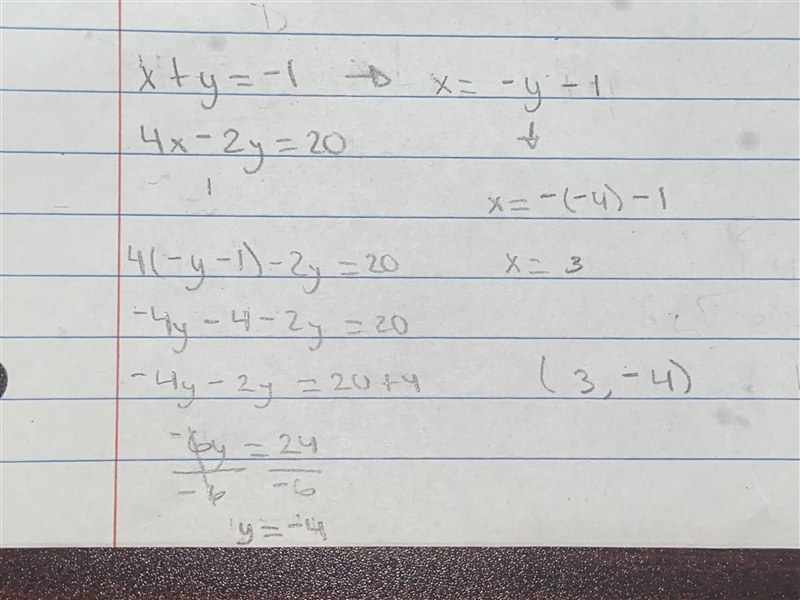 x + y = -1 → x = -y - 1
4x - 2y = 20
↓
x = -(-4) - 1
4(-y - 1) - 2y = 20
x = 3
-4y - 4 - 2y = 20
-4y - 2y = 20 + 4
(3, -4)
-6y = 24
-6 -6
y = -4